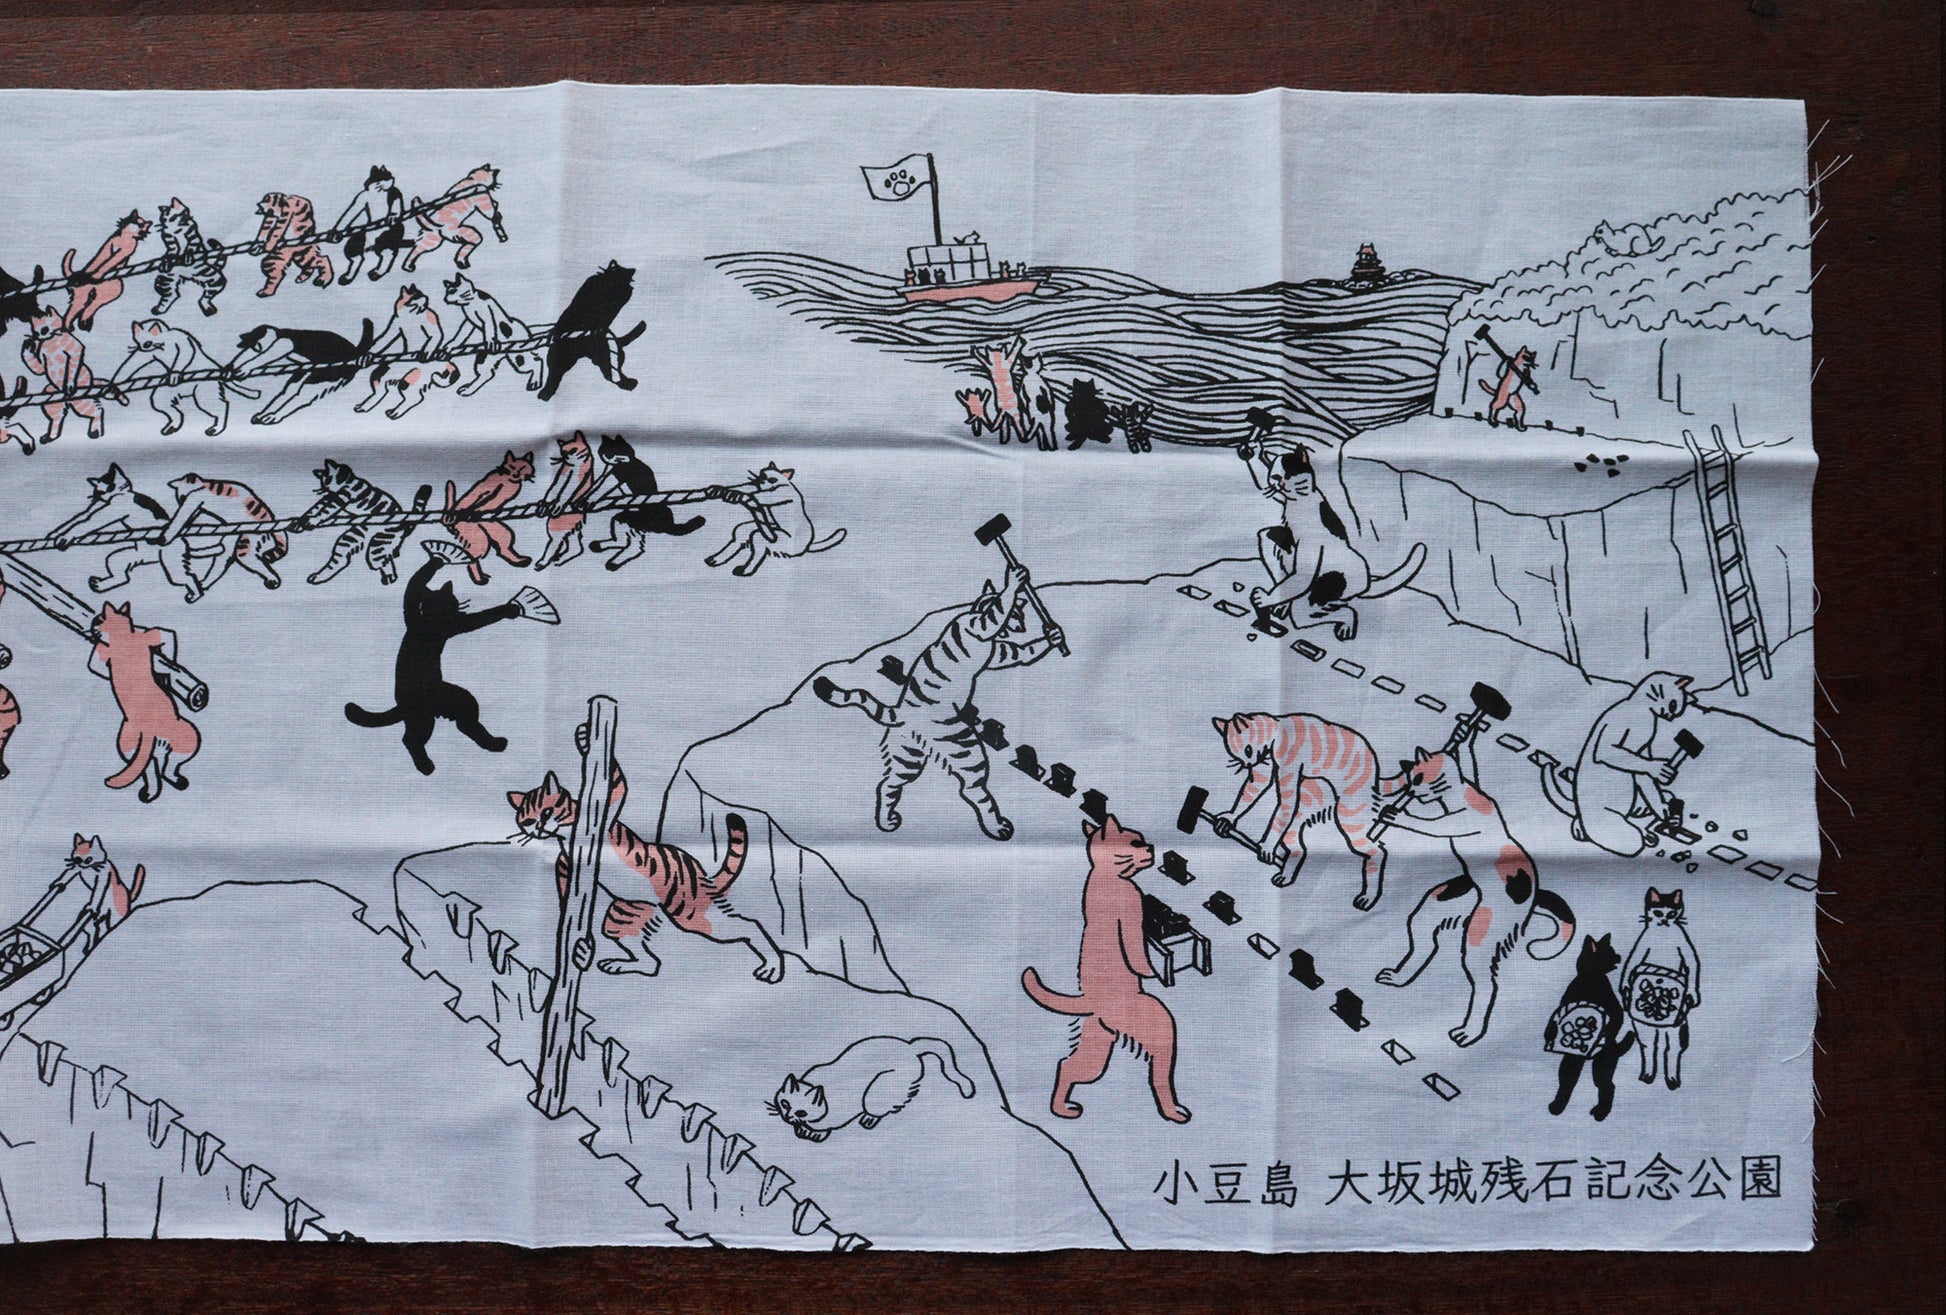 小豆島 大坂城残石記念公園